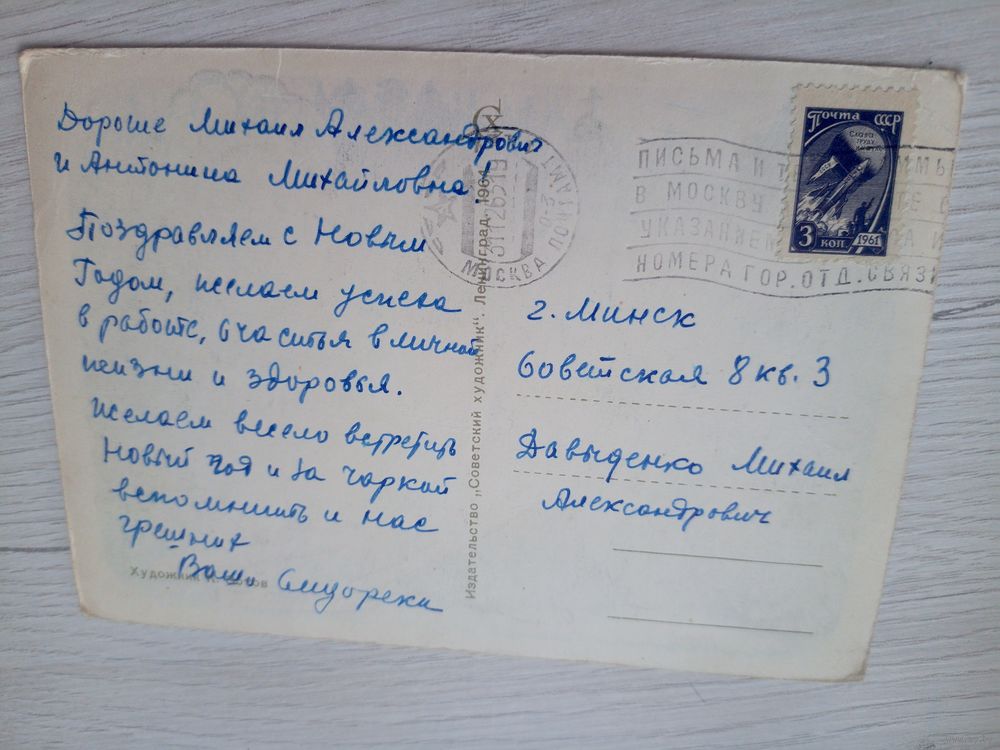 Дорогие Михаил Александрович
и Антонина Михайловна!
Поздравляем с Новым
Годом, желаем успеха
в работе, счастья в личной
жизни и здоровья.
Желаем весело встретить
Новый год и за чаркой
вспомнить и нас
грешних
Ваши
Художник
Издательство „Советский художник". Ленинград. 1961
СХ
МОСКВА
ПОЧТАМТ
311261
Почта СССР
Слава
труду
3 коп. 1961
ПИСЬМА И
В МОСКВУ
УКАЗАНИЕМ
НОМЕРА ГОР. ОТД. СВЯЗИ
г. Минск
Советская 8 кв. 3
Давыденко Михаил
Александрович